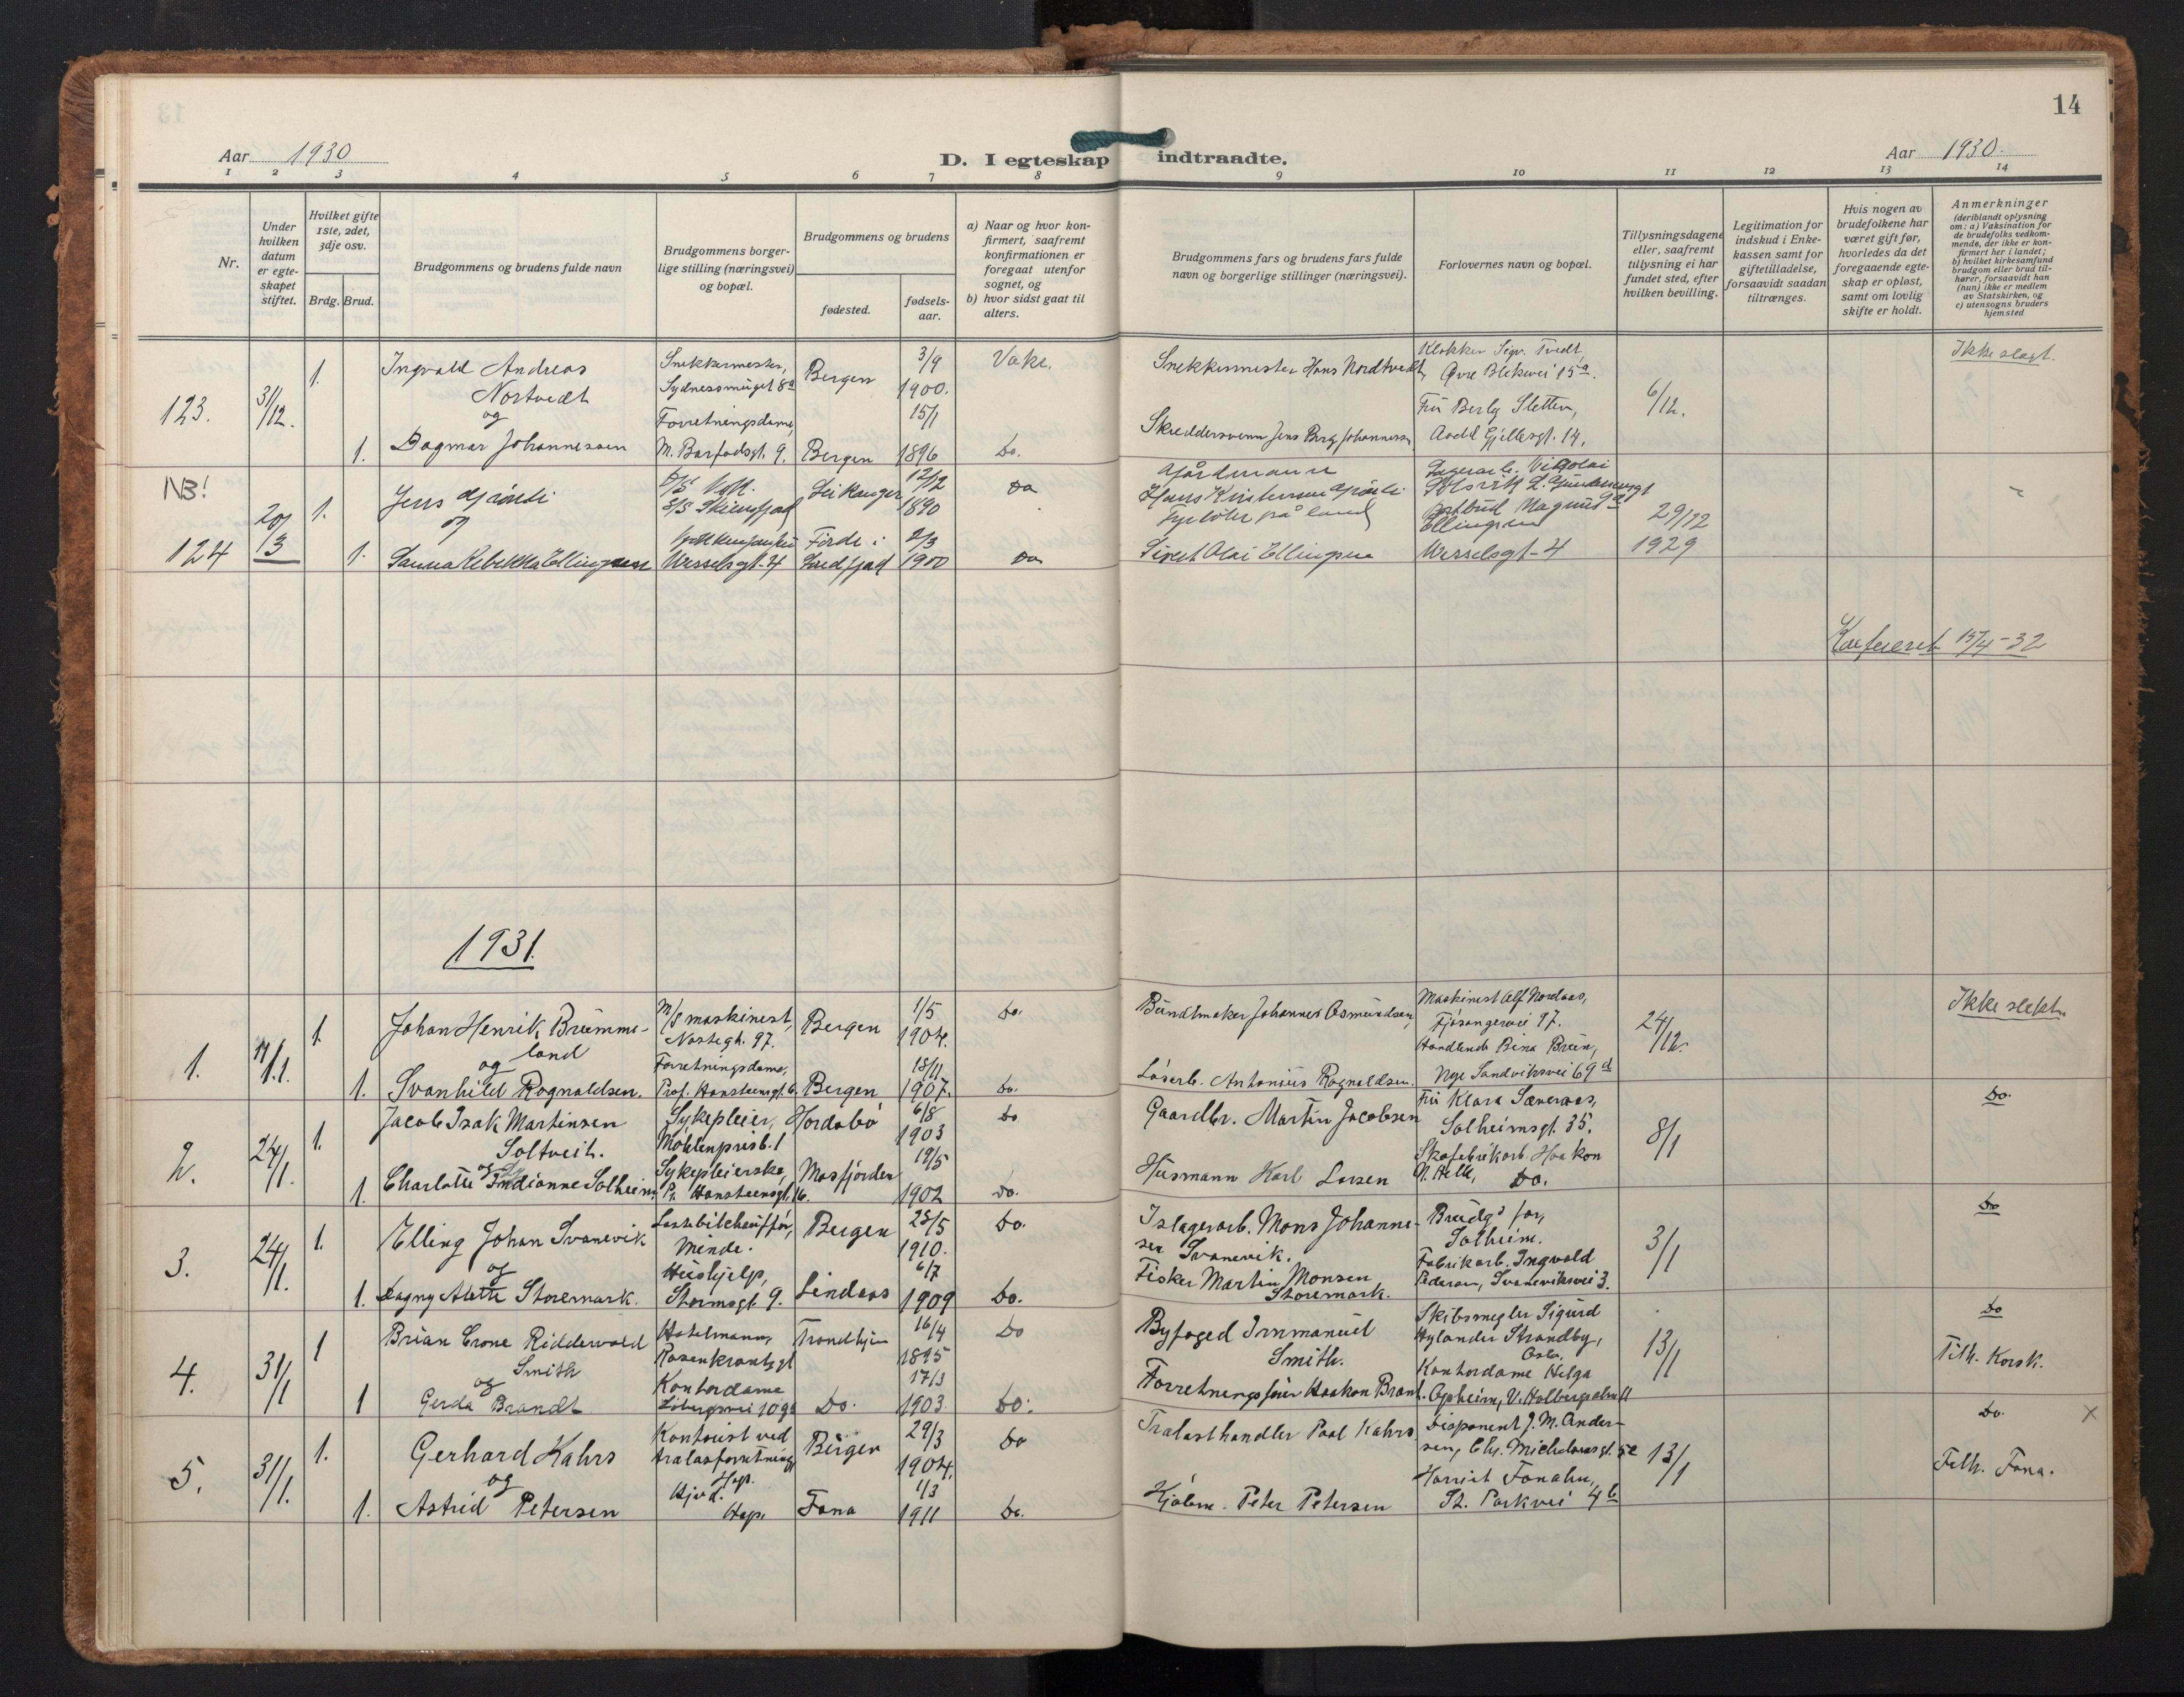 14
Aar 1930
D. I egteskap indtraadte.
Aar 1930.
1 2 3 4 5 6 7 8 9 10 11 12 13 14
Nr.
Under hvilken datum er egteskapet stiftet.
Hvilket gifte 1ste, 2det, 3dje osv.
Brdg. Brud.
Brudgommens og brudens fulde navn
Brudgommens borgerlige stilling (næringsvei) og bopæl.
Brudgommens og brudens
fødested.
fødselsaar.
a) Naar og hvor konfirmert, saafremt konfirmationen er foregaat utenfor sognet, og
b) hvor sidst gaat til alters.
Brudgommens fars og brudens fars fulde navn og borgerlige stillinger (næringsvei).
Forlovernes navn og bopæl.
Tillysningsdagene eller, saafremt tillysning ei har fundet sted, efter hvilken bevilling.
Legitimation for indskud i Enkekassen samt for giftetilladelse, forsaavidt saadan tiltrænges.
Hvis nogen av brudefolkene har været gift før, hvorledes da det foregaaende egteskap er opløst, samt om lovlig skifte er holdt.
Anmerkninger
(deriblandt oplysning om: a) Vaksination for de brudefolks vedkommende, der ikke er konfirmert her i landet; b) hvilket kirkesamfund brudgom eller brud tilhører, forsaavidt han (hun) ikke er medlem av Statskirken, og c) utensogns bruders hjemsted
123. 31/12. 1. Ingvald Andreas Nortvedt
og
1. Dagmar Johannessen
Snekkermester, Sydnessmuget 8a
Forretningsdame, M. Barfodsgt. 9.
Bergen 3/9 1900.
Bergen 15/1 1896
Vake.
Do.
Snekkermester Hans Nordtvedt
Skreddersvenn Jens Berg Johannessen
Klokker Sigv. Tvedt, Øvre Blekevei 15a.
Fru Berly Sletten, Aadel Gjellesgt. 14.
6/12.
Ikke slegt.
NB!
124 20/3 1. Jens
og
1. Sanna Rebekka Ellingsen
Wesselsgt-4
Leikanger 12/12 1890
Førde i Sundfjord 2/3 1900
Do
Do
Gårdmann
Hans Kristensen
Fyrbøter på land
Sivert Olai Ellingsen
Postbud Magnus Ellingsen
Wesselsgt-4
29/12 1929
Konferert 15/4-32
1931.
1. 1. Johan Henrik Brummeland
og
1. Svanhild Rognaldsen.
M/s maskinest, Nostegt. 97.
Forretningsdame, Prof. Hansteensgt. 6.
Bergen 1/5 1904.
Bergen 18/11 1907.
Do.
Do.
Buntmaker Johannes Osmundsen,
Løserb. Antonius Rognaldsen.
Maskinest Alf Nordaas, Fjøsangervei 97.
Handlende Bina Breen, Nye Sandviksvei 69d
24/12.
Ikke slekt.
2. 24/1. 1. Jacob Isak Martinsen Soltveit.
og
1. Charlotte Indianne Solheim
Sykepleier, Møhlenprisb. 1
Sykepleierske, Pr. Hansteensgt. 16.
Hordabø 6/8 1903
Masfjorden 19/5 1902
Do
Do.
Gaardbr. Martin Jacobsen
Husmann Karl Larsen
Fru Klara Sæveraas, Solheimsgt. 35.
Skofabrikarb. Haakon N. Helle, Do.
8/1
Do.
3. 24/1. 1. Elling Johan Svanevik
og
1. Dagny Alette Storemark.
Lastebilchauffør, Minde.
Hushjelp, Stormsgt. 9.
Bergen 25/5 1910.
Lindaas 6/7 1909
Do.
Do.
Islagerarb. Mons Johannesen Svanevik.
Fisker Martin Monsen Storemark.
Brudgs far, Solheim.
Fabrikarb. Ingvald Pedersen, Svaneviksvei 3.
3/1
Do
4. 31/1 1 Brian Crone Ridderwold Smith
og
1 Gerda Brandt
Hotelmann, Rosenkrantzgt
Kontordame
Trondhjem 16/4 1895
Do. 17/3 1903.
Do
Do.
Byfoged Immanuel Smith.
Forretningsfører Haakon Brant.
Skibsmegler Sigurd Hylander Strandby, Oslo.
Kontordame Helga Opheim, V. Holbergsalm. 11
13/1
Do
Tilh. Korsk.
5. 31/1. 1. Gerhard Kahrs
og
1. Astrid Petersen
Kontorist ved trælastforretning, Hop.
Hjvd. Hop.
Bergen 29/3 1904.
Fana 1/3 1911
Do
Do.
Trælasthandler Paal Kahrs
Kjøbm. Peter Petersen
Disponent J. M. Andersen, Chr. Michelsensgt. 5c
Harriet Fonahn, St. Parkvei 4b
13/1
Do. X
Tilh. Fana.